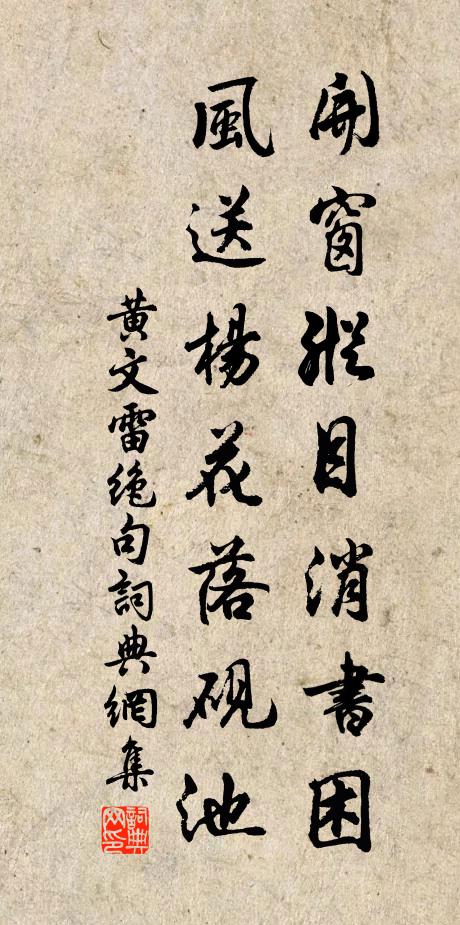 開窗縱目消書困
風送楊花落硯池
黃文雷絶句詞典網集
詞典網印